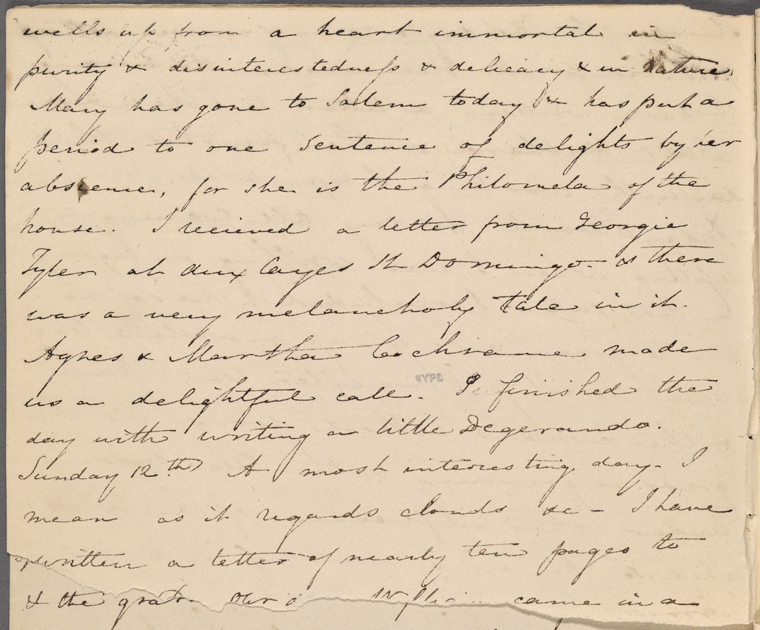 wells up from a heart immortal in
purity & disinterestedness & delicacy & in nature.
Mary has gone to Salem today & has put a
period to one sentence of delights by her
absence, for she is the Philomela of the
house. I recieved a letter from Georgie
Tyler at Aux Cayes St Domingo & there
was a very melancholy tale in it.
Agnes & Martha Cochrane made
us a delightful call. I finished the
NYPL
day with writing a little Degerando.
Sunday 12th A most interesting day - I
mean as it regards clouds &c - I have
written a letter of nearly ten pages to
& the came in a